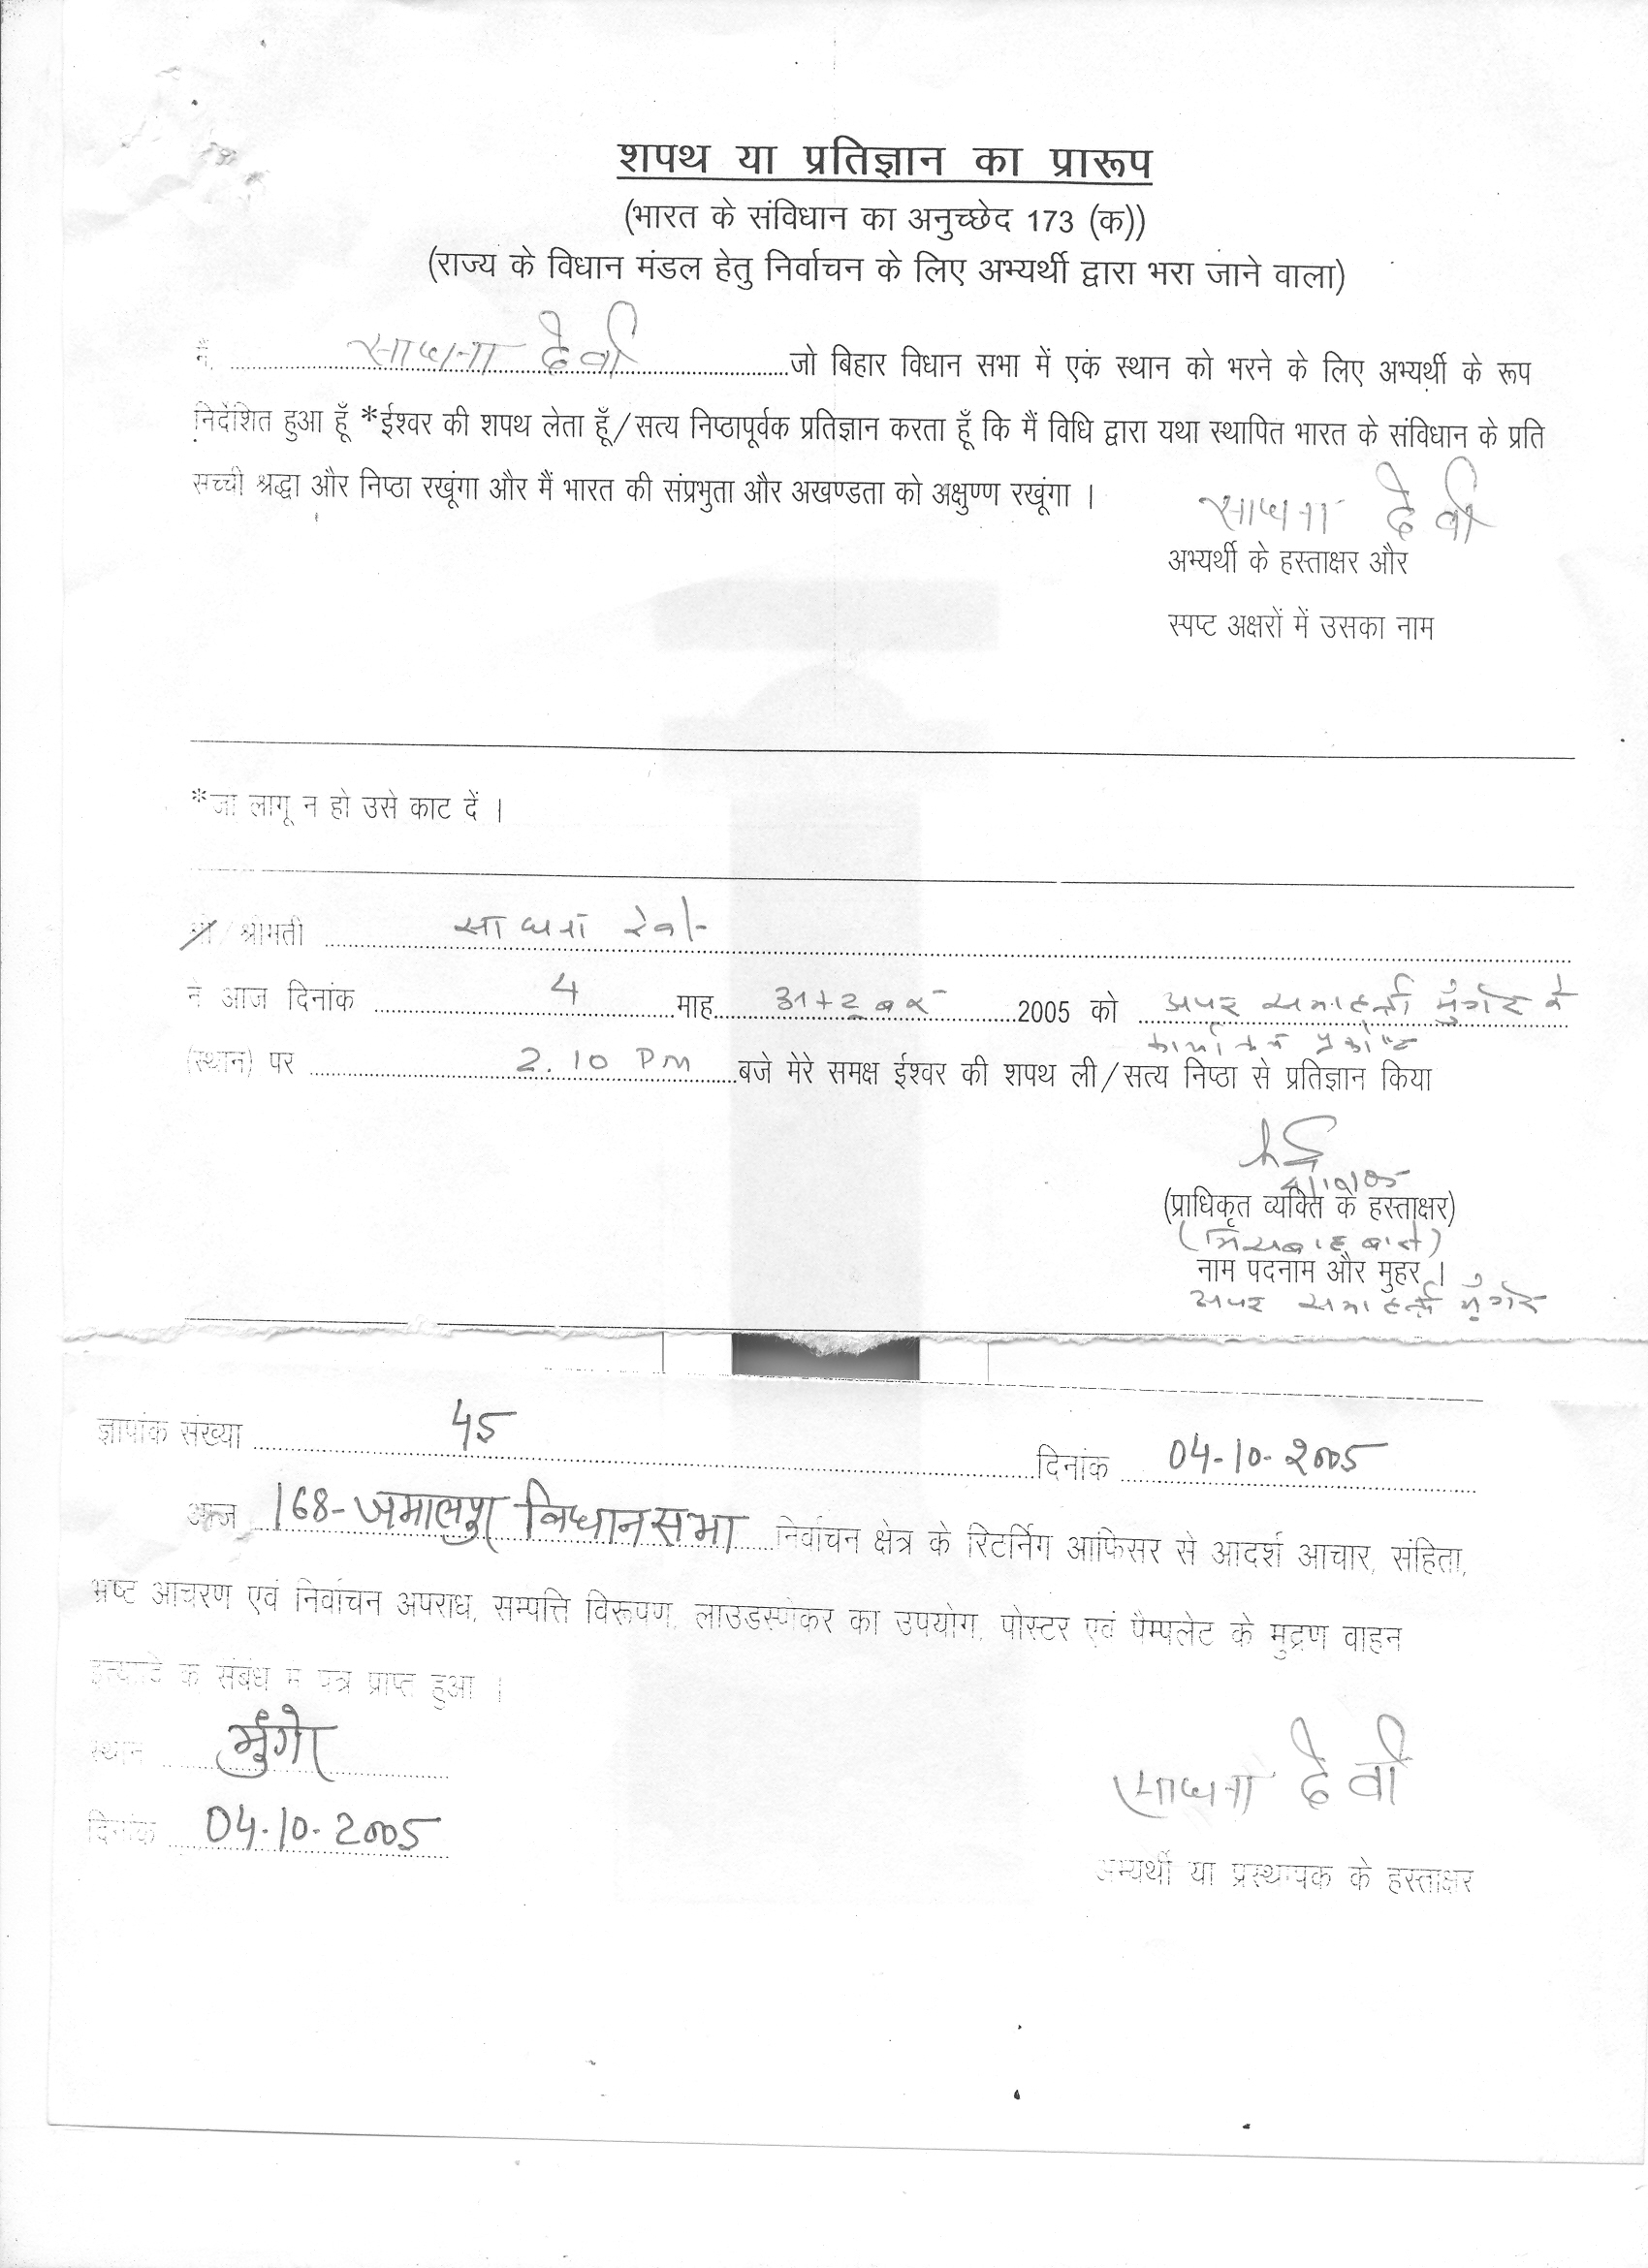 शपथ या प्रतिज्ञान का प्रारूप
(भारत के संविधान का अनुच्छेद 173 (क))
(राज्य के विधान मंडल हेतु निर्वाचन के लिए अभ्यर्थी द्वारा भरा जाने वाला)
मैं, साधना देवी जो बिहार विधान सभा में एक स्थान को भरने के लिए अभ्यर्थी के रूप
निर्देशित हुआ हूँ *ईश्वर की शपथ लेता हूँ/सत्य निष्ठापूर्वक प्रतिज्ञान करता हूँ कि मैं विधि द्वारा यथा स्थापित भारत के संविधान के प्रति
सच्ची श्रद्धा और निष्ठा रखूंगा और मैं भारत की संप्रभुता और अखण्डता को अक्षुण्ण रखूंगा ।
साधना देवी
अभ्यर्थी के हस्ताक्षर और
स्पष्ट अक्षरों में उसका नाम
*जो लागू न हो उसे काट दें ।
श्री/श्रीमती साधना देवी
ने आज दिनांक 4 माह अक्टूबर 2005 को अपर समाहर्ता मुंगेर के
कार्यालय प्रकोष्ठ
(स्थान) पर 2.10 PM बजे मेरे समक्ष ईश्वर की शपथ ली/सत्य निष्ठा से प्रतिज्ञान किया
4/10/05
(प्राधिकृत व्यक्ति के हस्ताक्षर)
नाम पदनाम और मुहर ।
अपर समाहर्ता मुंगेर
ज्ञापांक संख्या 45 दिनांक 04-10-2005
आज 168-जमालपुर विधानसभा निर्वाचन क्षेत्र के रिटर्निंग आफिसर से आदर्श आचार, संहिता,
भ्रष्ट आचरण एवं निर्वाचन अपराध, सम्पत्ति विरूपण, लाउडस्पीकर का उपयोग, पोस्टर एवं पैम्पलेट के मुद्रण वाहन
इत्यादि के संबंध में पत्र प्राप्त हुआ ।
स्थान मुंगेर
साधना देवी
दिनांक 04-10-2005
अभ्यर्थी या प्रस्थापक के हस्ताक्षर